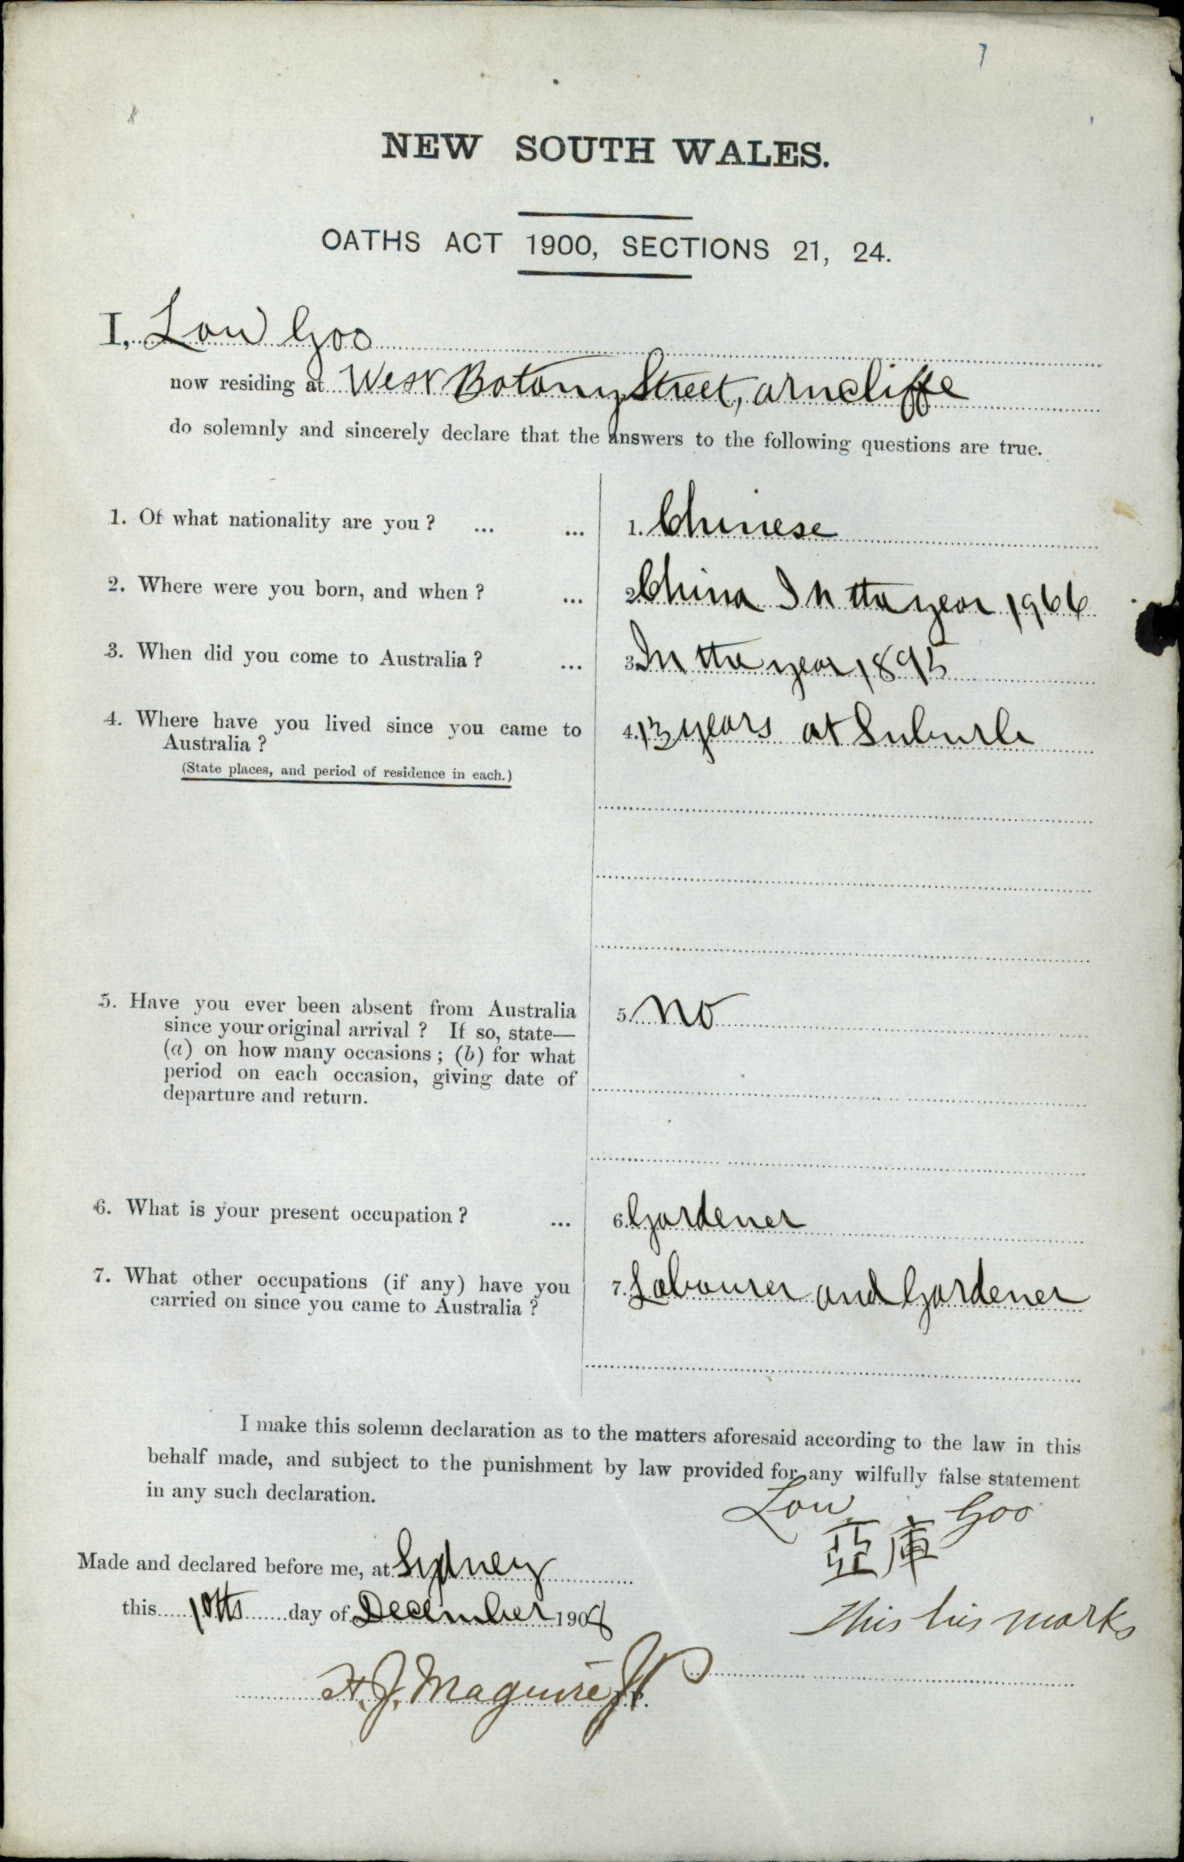 7
NEW SOUTH WALES.
OATHS ACT 1900, SECTIONS 21, 24.
I, Low Goo
now residing at West Botany Street, Arncliffe
do solemnly and sincerely declare that the answers to the following questions are true.
1. Of what nationality are you? ... ... 1. Chinese
2. Where were you born, and when? ... 2. China In the year 1966
3. When did you come to Australia? ... 3. In the year 1895
4. Where have you lived since you came to 4. 13 years at Suburb
Australia?
(State places, and period of residence in each.)
5. Have you ever been absent from Australia 5. No
since your original arrival? If so, state—
(a) on how many occasions; (b) for what
period on each occasion, giving date of
departure and return.
6. What is your present occupation? ... 6. Gardener
7. What other occupations (if any) have you 7. Labourer and Gardener
carried on since you came to Australia?
I make this solemn declaration as to the matters aforesaid according to the law in this
behalf made, and subject to the punishment by law provided for any wilfully false statement
in any such declaration.
Low Goo
亞庫
Made and declared before me, at Sydney
this 10th day of December 1908
This his marks
H. J. Maguire JP